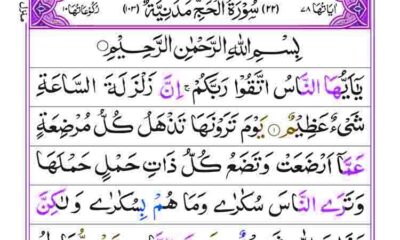 اٰیَاتُهَا ٧٨ (٢٢) سُوْرَةُ الْحَجِّ مَدَنِيَّةٌ (١٠٣) رُكُوْعَاتُهَا ١٠
بِسْمِ اللهِ الرَّحْمٰنِ الرَّحِيْمِ
يٰۤاَيُّهَا النَّاسُ اتَّقُوْا رَبَّكُمْ ۚ اِنَّ زَلْزَلَةَ السَّاعَةِ
شَيْءٌ عَظِيْمٌ ١ يَوْمَ تَرَوْنَهَا تَذْهَلُ كُلُّ مُرْضِعَةٍ
عَمَّاۤ اَرْضَعَتْ وَتَضَعُ كُلُّ ذَاتِ حَمْلٍ حَمْلَهَا
وَتَرَى النَّاسَ سُكٰرٰى وَمَا هُمْ بِسُكٰرٰى وَلٰكِنَّ